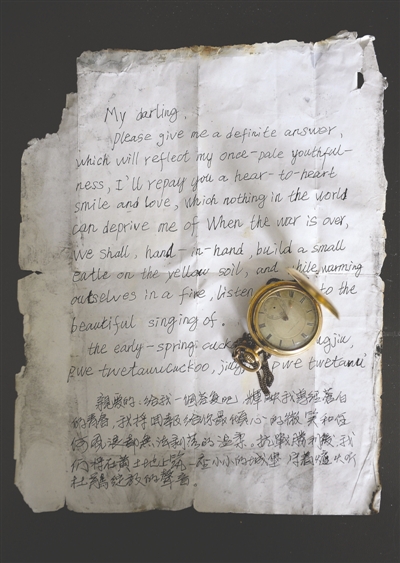 My darling,
please give me a definite answer,
which will reflect my once-pale youthful-
ness, I'll repay you a hear-to-heart
smile and love, which nothing in the world
can deprive me of When the war is over,
we shall, hand-in-hand, build a small
catle on the yellow soil, and while warming
outselves in a fire, listen to the
beautiful singing of.
the early-spring
親愛的:給我一個答覆吧,輝映我曾經蒼白
的青春,我將回報給你最傾心的微笑和任
何風浪都無法剝落的溫柔,抗戰勝利後,我
們將在黃土地上築一座小小的城堡 圍著爐火听
杜鵑綻放的聲音。